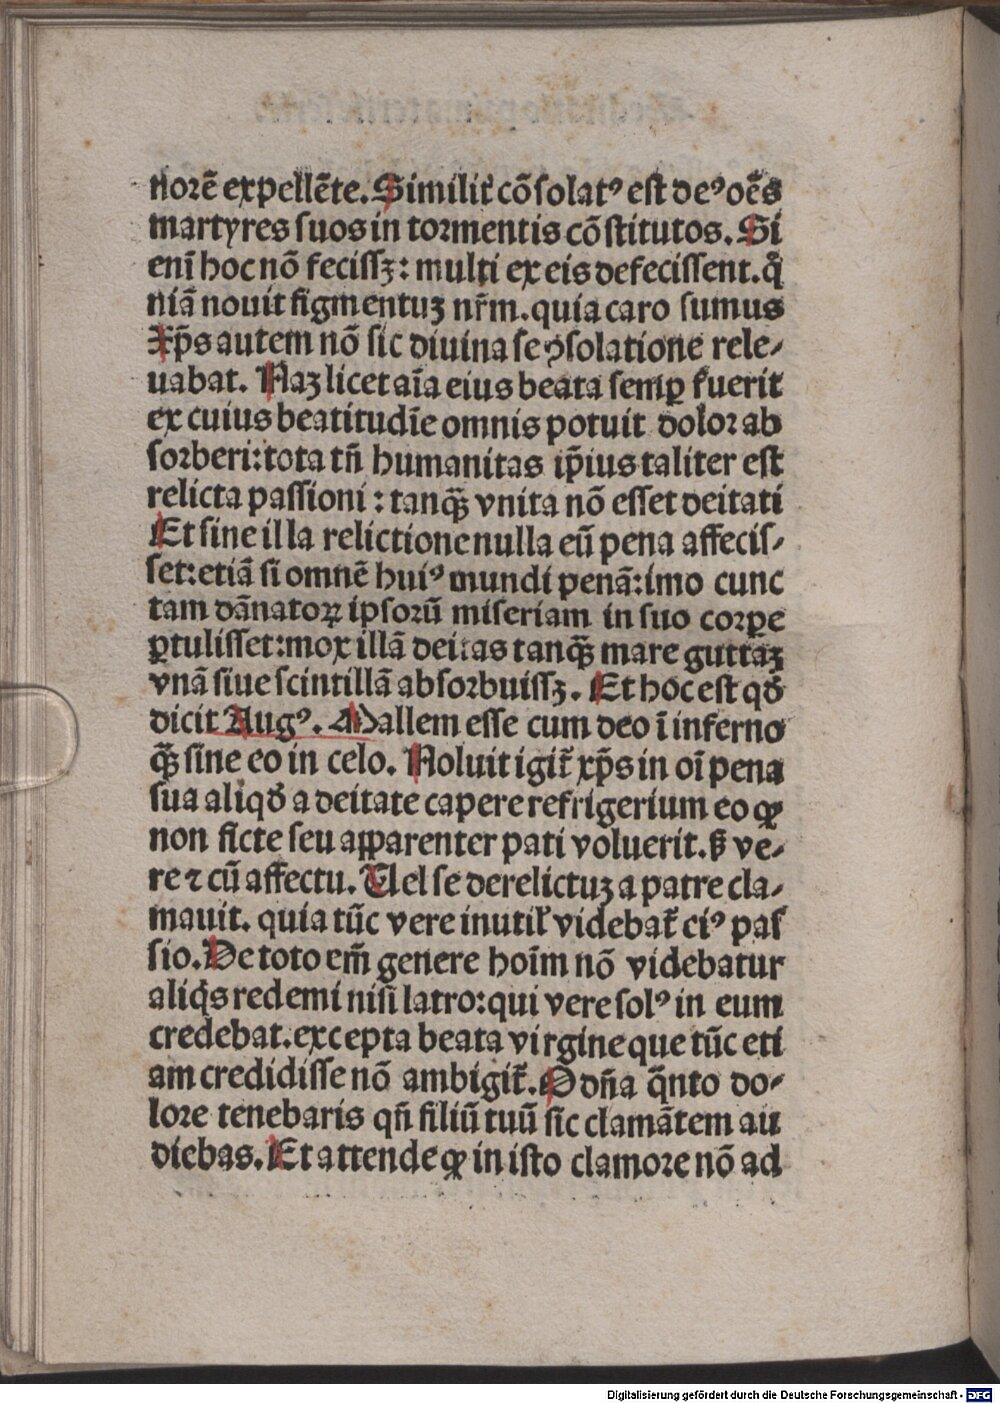 norē expellēte. Similiť cōsolatꝰ est deꝰ oēs
martyres suos in tormentis cōstitutos. Si
eni̅ hoc nō fecissꝫ: multi ex eis defecissent. qͣ
niā nouit figmentuꝫ nr̄m. quia caro sumus
Xp̄s autem nō sic diuina se ꝯsolatione rele⸗
uabat. Naꝫ licet aīa eius beata semꝑ fuerit
ex cuius beatitudīe omnis potuit dolor ab
sorberi: tota tn̄ humanitas ip̄ius taliter est
relicta passioni: tanqꝫ̄ vnita nō esset deitati
Et sine illa relictione nulla eū pena affecis⸗
set: etiā si omnē huiꝰ mundi penā: imo cunc
tam dānatoꝝ ipsorū miseriam in suo corꝑe
ꝑtulisset: mox illā deitas tanqꝫ̄ mare guttaꝫ
vnā siue scintillā absorbuissꝫ. Et hoc est qd̄
dicit Augꝰ. Mallem esse cum deo ī inferno
qꝫ̄ sine eo in celo. Noluit igit᷑ xp̄s in oī pena
sua aliqd̄ a deitate capere refrigerium eo ꝙ
non ficte seu apparenter pati voluerit. sꝫ ve⸗
re ⁊ cū affectu. Uel se derelictuꝫ a patre cla⸗
mauit. quia tūc vere inutiľ videbat᷑ eiꝰ pas
sio. De toto em̄ genere hoīm nō videbatur
aliqͥs redemi nisi latro: qui vere solꝰ in eum
credebat. excepta beata virgine que tūc eti
am credidisse nō ambigit᷑. O dn̄a qͣnto do⸗
lore tenebaris qn̄ filiū tuū sic clamātem au
diebas. Et attende ꝙ in isto clamore nō ad
Digitalisierung gefördert durch die Deutsche Forschungsgemeinschaft - DFG